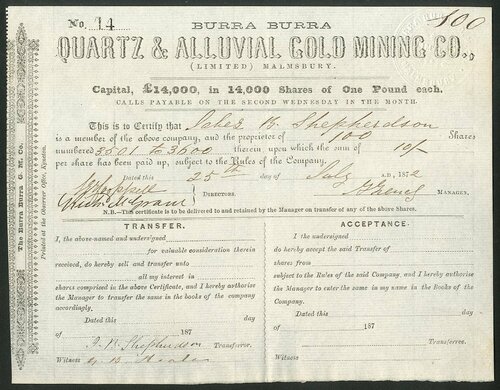 No. 14
100
BURRA BURRA
QUARTZ & ALLUVIAL GOLD MINING CO.,
(LIMITED) MALMSBURY.
Capital, £14,000, in 14,000 Shares of One Pound each.
CALLS PAYABLE ON THE SECOND WEDNESDAY IN THE MONTH.
This is to Certify that Jabez B. Shepherdson
is a member of the above company, and the proprietor of 100 Shares
numbered 3501 to 3600 therein upon which the sum of 10/-
per share has been paid up, subject to the Rules of the Company.
Dated this 25th day of July A.D., 1872
DIRECTORS.
MANAGER.
N.B.—This certificate is to be delivered to and retained by the Manager on transfer of any of the above Shares.
The Burra Burra G. M. Co.
Printed at the Observer Office, Kyneton.
TRANSFER.
I, the above-named and undersigned
for valuable consideration therein
received, do hereby sell and transfer unto
all my interest in
shares comprised in the above Certificate, and I hereby authorise
the Manager to transfer the same in the books of the company
accordingly,
Dated this day
of 187
J. B. Shepherdson Transferror.
Witness
ACCEPTANCE.
I the undersigned
do hereby accept the said Transfer of
shares from
subject to the Rules of the said Company, and I hereby authorise
the Manager to enter the same in my name in the Books of the
Company.
Dated this day
of 187
Transferree.
Witness